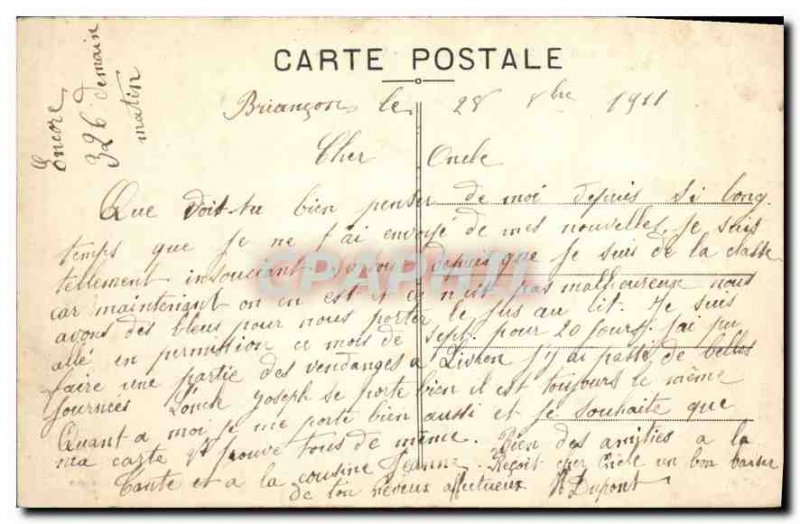 CARTE POSTALE
Encore
326 demain
matin
Briançon le 28 8bre 1911
Cher Oncle
Que doit-tu bien penser de moi depuis si long
temps que je ne t'ai envoyé de mes nouvelles, je suis
tellement insouciant depuis que je suis de la classe
car maintenant on en est n'est pas malheureux nous
avons des bleus pour nous porter le jus au lit. Je suis
allé en permission ce mois de sept. pour 20 jours. j'ai pu
faire une partie des vendanges a Livron j'y ai passé de belles
journées L'oncle Joseph se porte bien il est toujours le même
Quant a moi je me porte bien aussi et je souhaite que
ma carte vs trouve tous de même. Bien des amitiés a la
tante et a la cousine Jeanne. Reçoit cher Oncle un bon baiser
de ton neveux affectueux Dupont
CPAPHIL